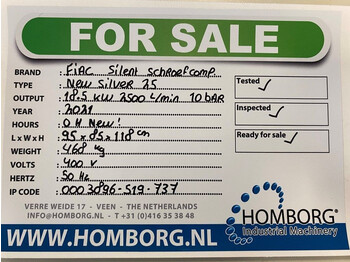 FOR SALE
BRAND : FiAC Silent Schroefcomp.
TYPE : New Silver 25
OUTPUT : 18.5 kW 2500 L/min 10 BAR
YEAR : 2021
HOURS : 0 H New!
L x W x H : 95 x 85 x 118 cm
WEIGHT : 468 kg
VOLTS : 400 V
HERTZ : 50 Hz
IP CODE : 0003896-519-737
Tested
Inspected
Ready for sale
VERRE WEIDE 17 - VEEN - THE NETHERLANDS
INFO@HOMBORG.NL - T +31 (0)416 35 38 48
WWW.HOMBORG.NL
HOMBORG®
Industrial Machinery